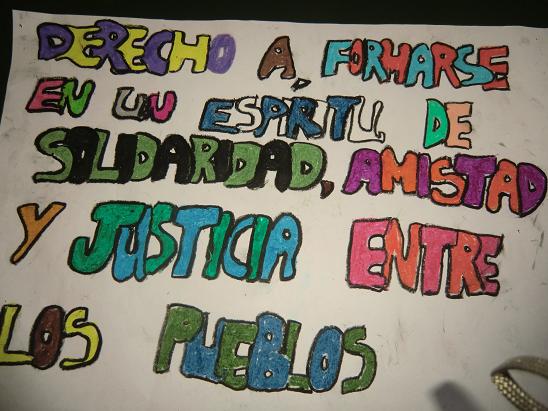 DERECHO A, FORMARSE
EN UN ESPÍRITU DE
SOLIDARIDAD, AMISTAD
Y JUSTICIA ENTRE
LOS PUEBLOS